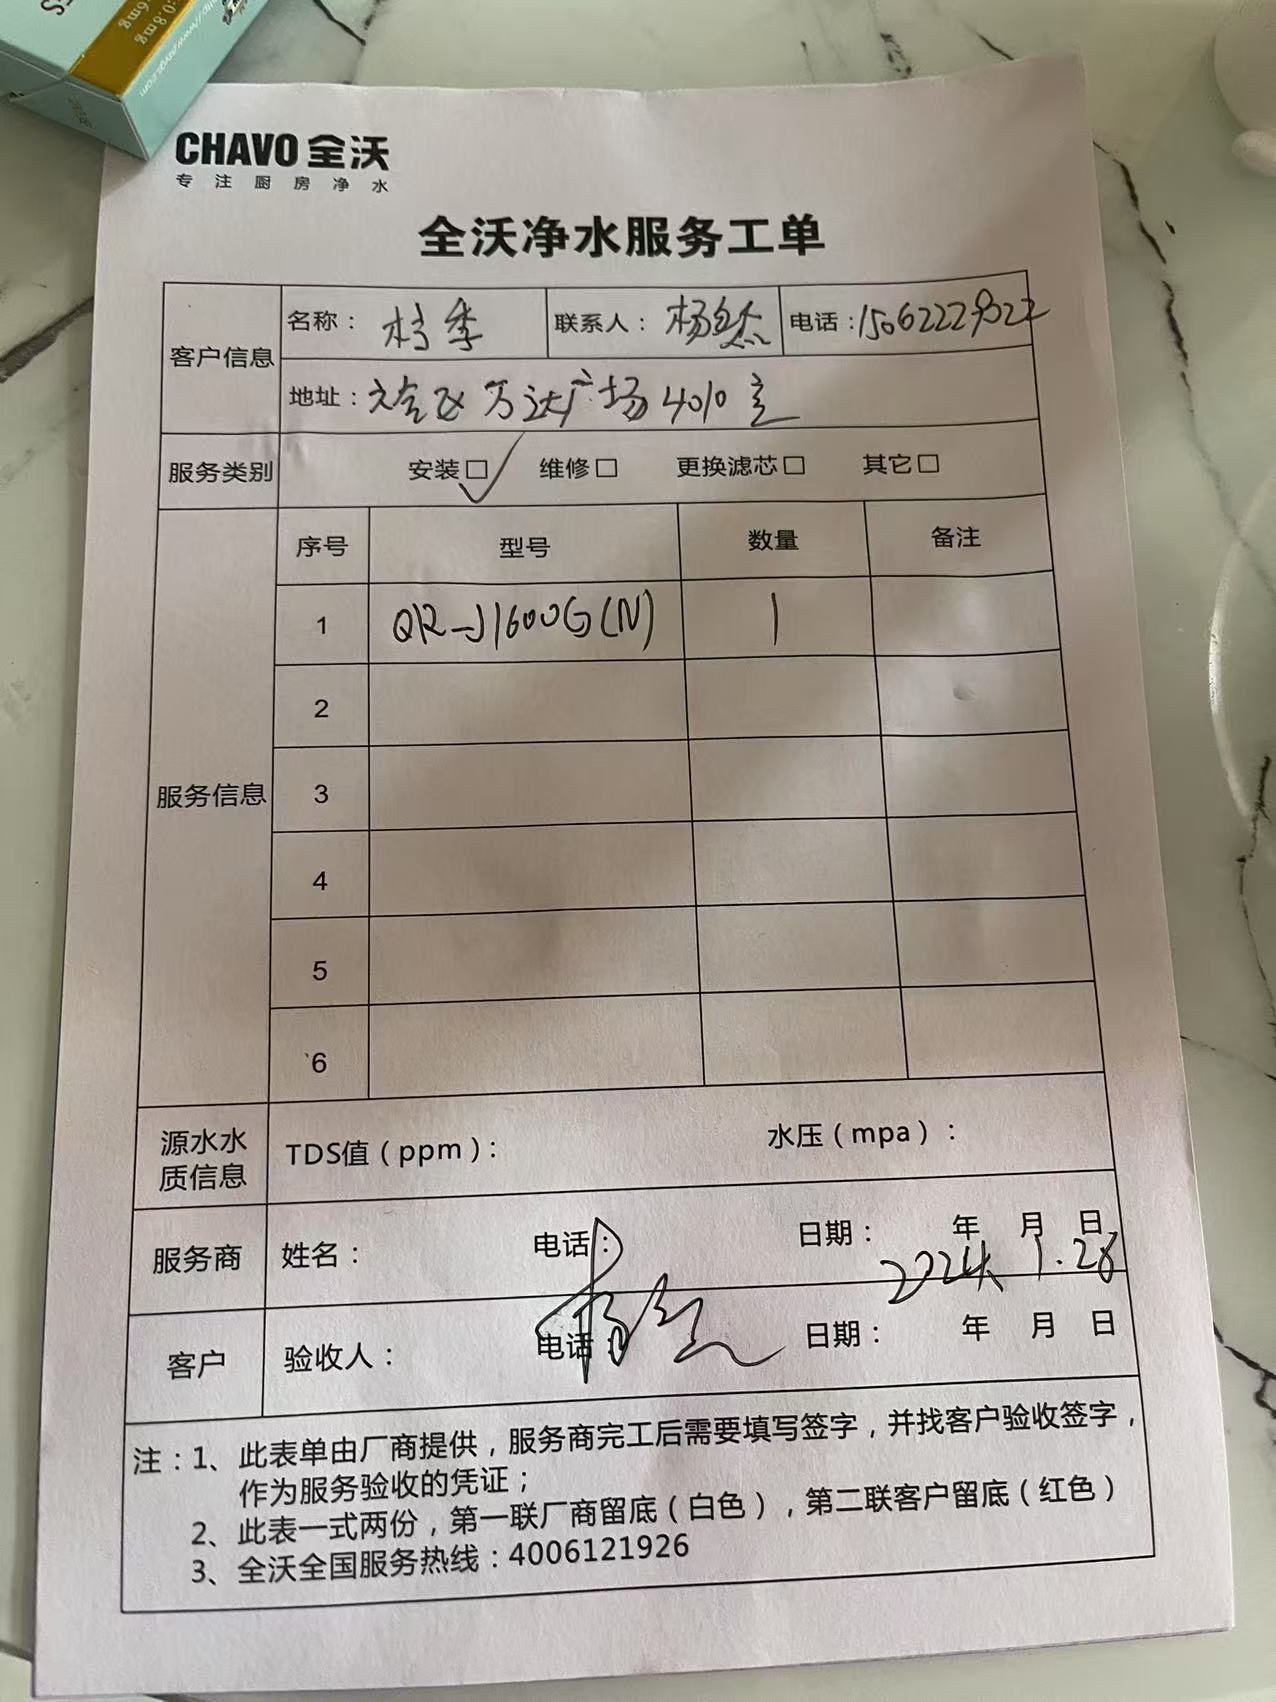 CHAVO 全沃
专注厨房净水
全沃净水服务工单
客户信息
名称：村季
联系人：杨
电话：15062229322
地址：六合区万达广场4010
服务类别
安装□ ✓ 维修□ 更换滤芯□ 其它□
服务信息
序号 型号 数量 备注
1 QR-J1600G(N) 1
2
3
4
5
6
源水水质信息
TDS值（ppm）： 水压（mpa）：
服务商
姓名： 电话： 日期： 年 月 日
2024. 1.28
客户
验收人： 电话： 日期： 年 月 日
注：1、此表单由厂商提供，服务商完工后需要填写签字，并找客户验收签字，
作为服务验收的凭证；
2、此表一式两份，第一联厂商留底（白色），第二联客户留底（红色）
3、全沃全国服务热线：4006121926